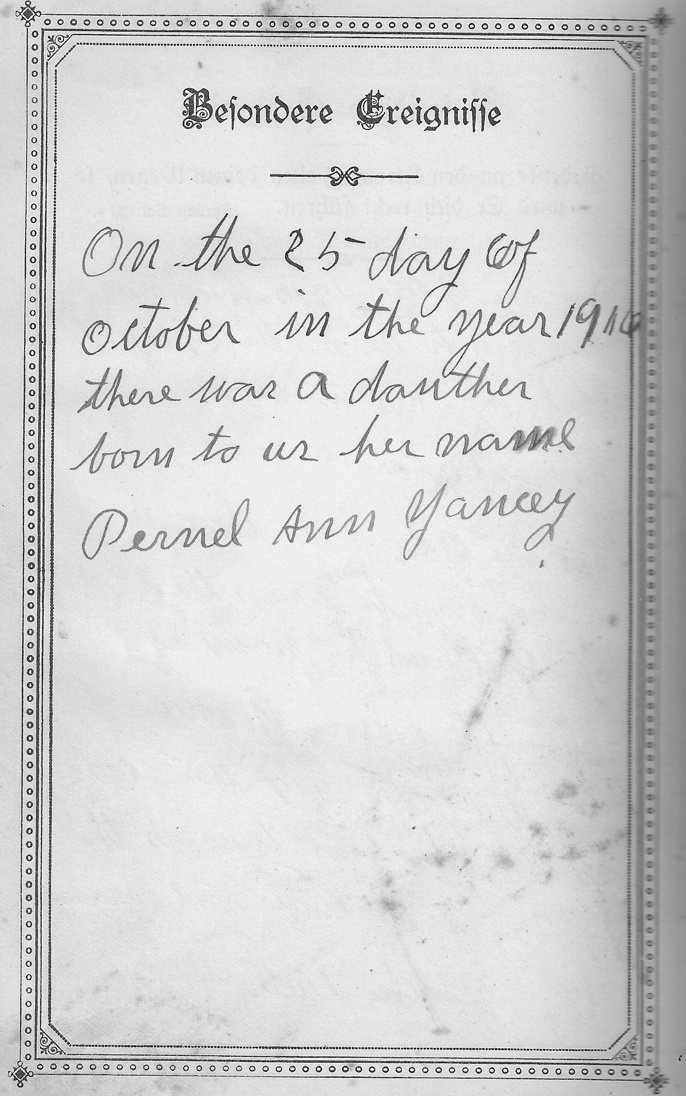 Besondere Ereignisse
On the 25 day of
october in the year 1916
there was a dauther
born to us her name
Pernel Ann Yancey